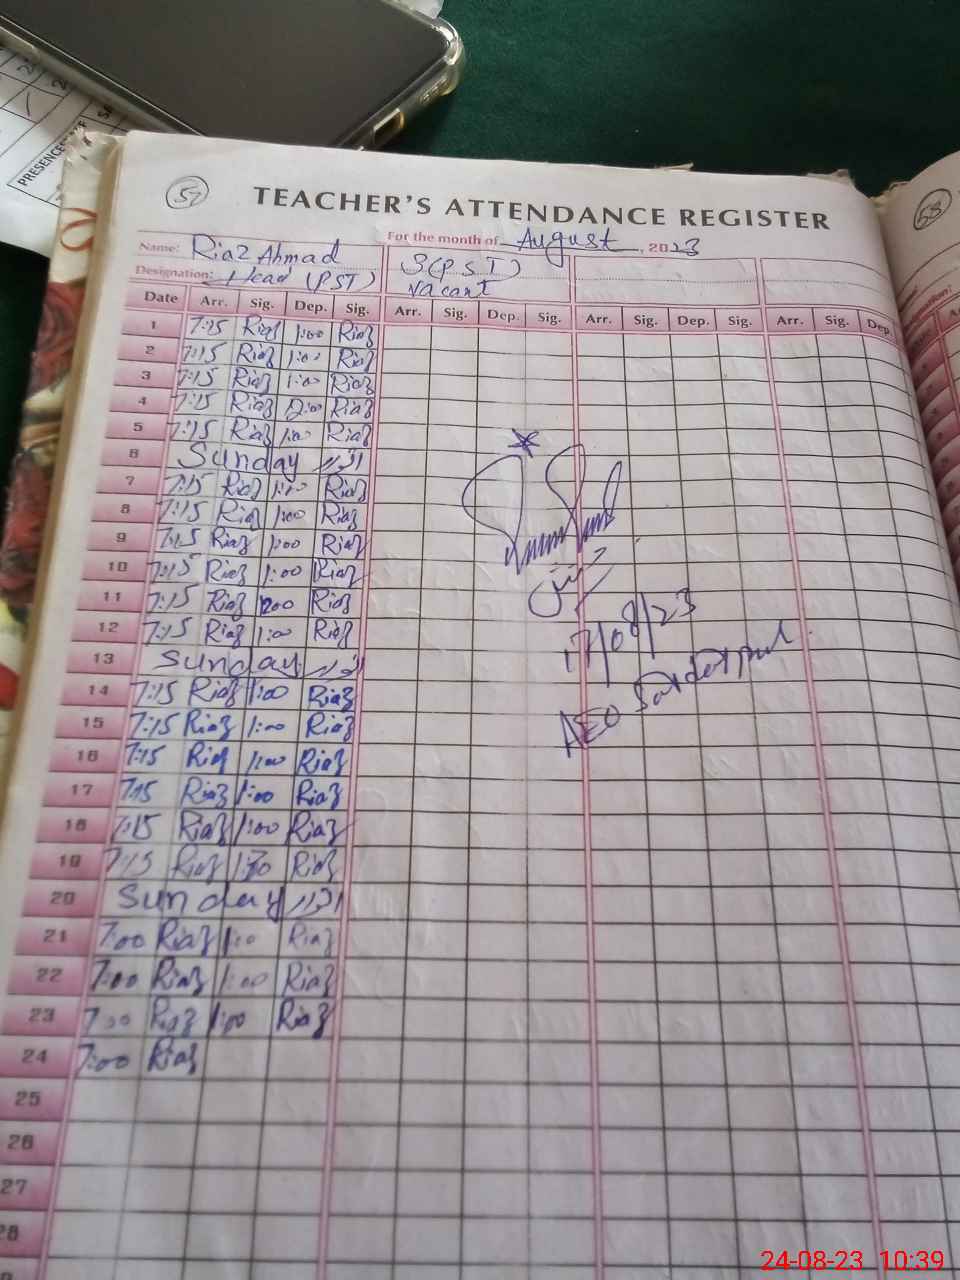 PRESENCE
57
TEACHER'S ATTENDANCE REGISTER
58
For the month of August, 2023
Name: Riaz Ahmad 3(PST)
Designation: Head (PST) vacant
Date Arr. Sig. Dep. Sig. Arr. Sig. Dep. Sig. Arr. Sig. Dep. Sig. Arr. Sig. Dep.
1 7:15 Riaz 1:00 Riaz
2 7:15 Riaz 1:00 Riaz
3 7:15 Riaz 1:00 Riaz
4 7:15 Riaz 12:00 Riaz
5 7:15 Riaz 1:00 Riaz
6 Sunday اتوار
7 7:15 Riaz 1:00 Riaz
8 7:15 Riaz 1:00 Riaz
9 7:15 Riaz 1:00 Riaz
10 7:15 Riaz 1:00 Riaz
11 7:15 Riaz 1200 Riaz
12 7:15 Riaz 1:00 Riaz
13 Sunday اتوار
14 7:15 Riaz 1:00 Riaz
15 7:15 Riaz 1:00 Riaz
16 7:15 Riaz 1:00 Riaz
17 7:15 Riaz 1:00 Riaz
18 7:15 Riaz 1:00 Riaz
19 7:15 Riaz 1:30 Riaz
20 Sunday اتوار
21 7:00 Riaz 1:00 Riaz
22 7:00 Riaz 1:00 Riaz
23 7:00 Riaz 1:00 Riaz
24 7:00 Riaz
25
26
27
28
17/08/23
AEO
24-08-23 10:39